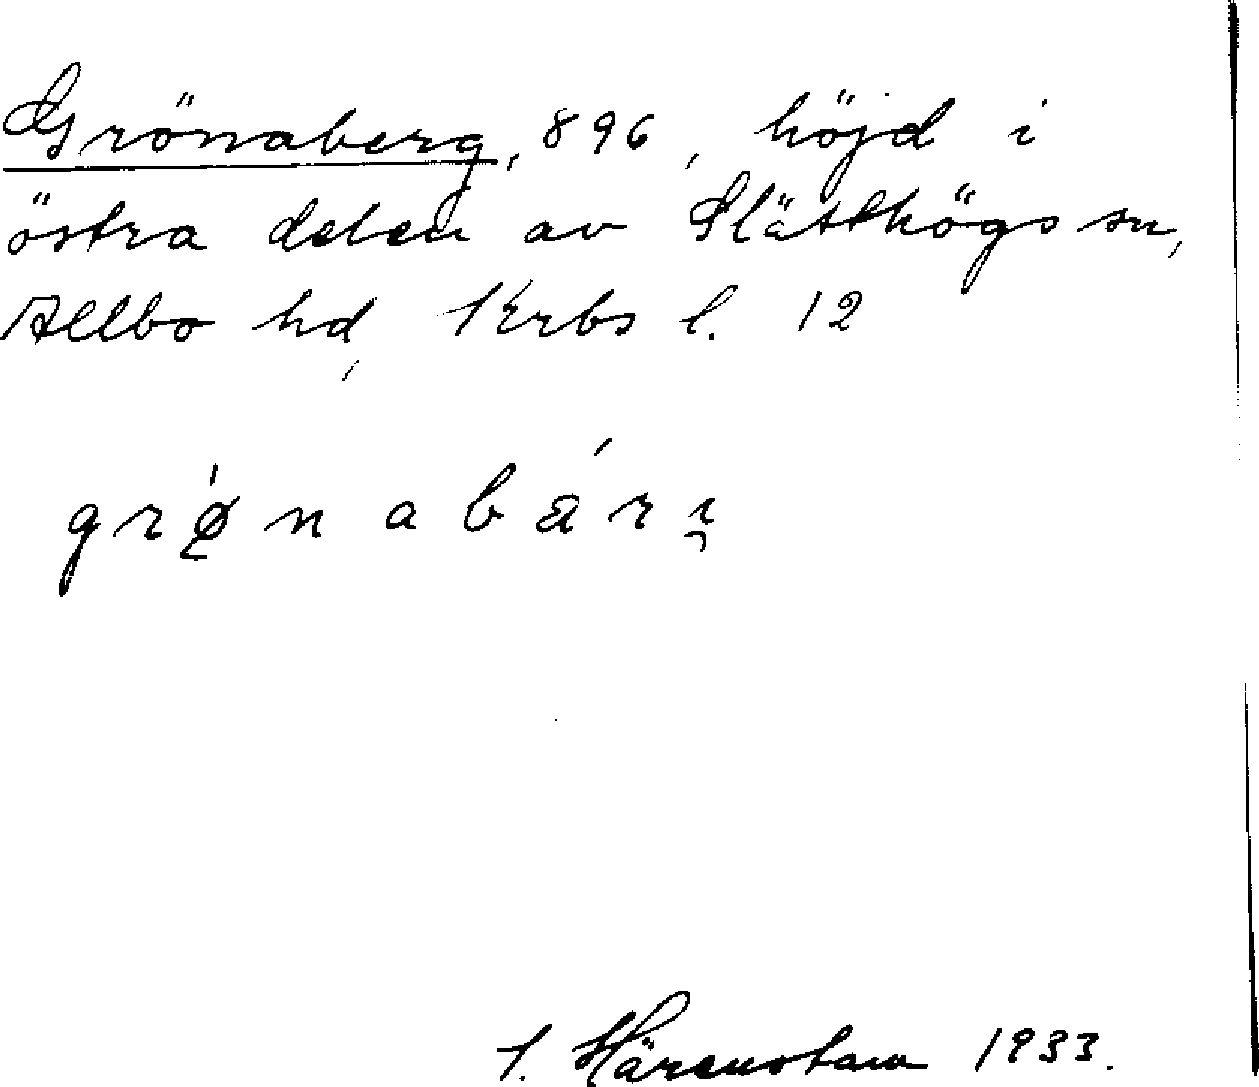 Grönaberg, 896, höjd i
östra delen av Slätthögs sn,
Allbo hd, Krbs l. 12
grǿ̨nabári̯
1933.